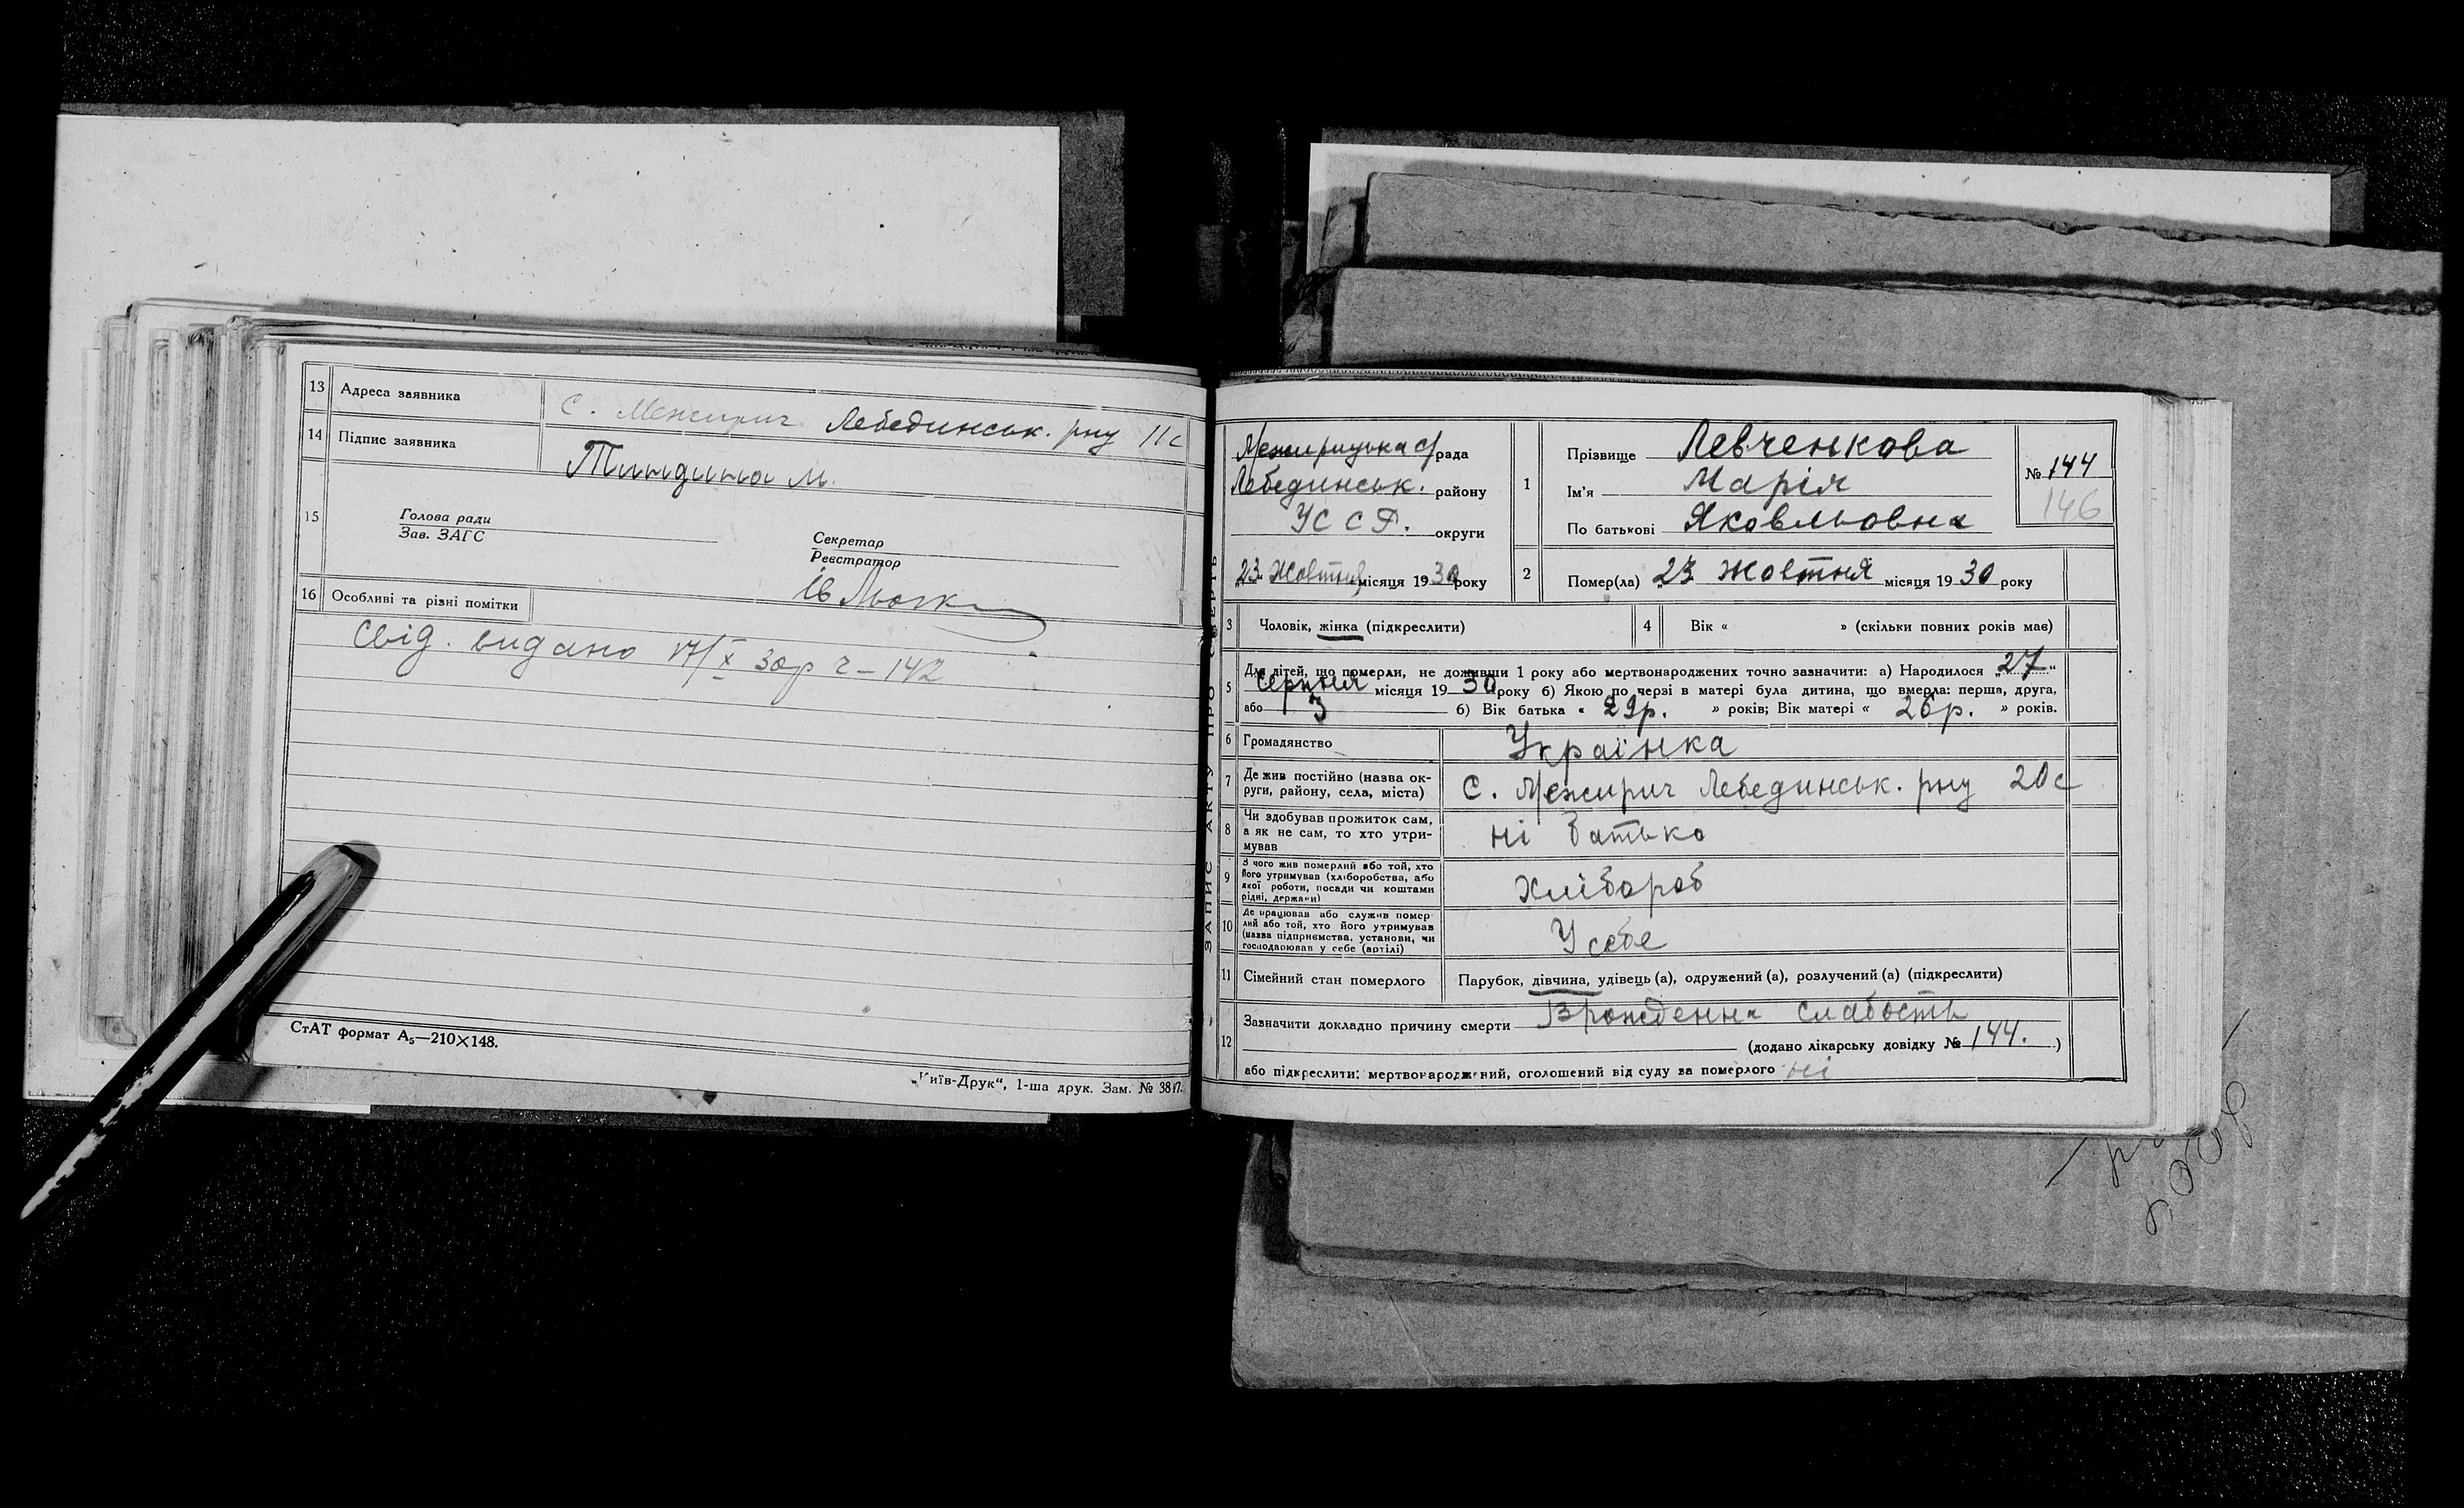 13 Адреса заявника С. Межирич Лебединськ. рну 11с
14 Підпис заявника
15 Голова ради
Зав. ЗАГС
Секретар
Реєстратор
16 Особливі та різні помітки
Свід. видано 17/X 30р ч – 142
СтАТ формат А₅—210×148.
„Київ-Друк“, 1-ша друк. Зам. №
ЗАПИС АКТУ ПРО СМЕРТЬ
Межирицька с/рада
Лебединськ. району
УССР. округи
„23„ Жовтня місяця 1930 року
1 Прізвище Левченкова
Ім'я Марія
По батькові Яковльовна
№ 144
146
2 Помер(ла) „23 Жовтня місяця 1930 року
3 Чоловік, жінка (підкреслити)
4 Вік « » (скільки повних років має)
5 Для дітей, що померли, не доживши 1 року або мертвонароджених точно зазначити: а) Народилося „27„
Серпня місяця 1930 року б) Якою по черзі в матері була дитина, що вмерла: перша, друга,
або 3 б) Вік батька « 29р. » років; Вік матері « 26р. » років.
6 Громадянство Українка
7 Де жив постійно (назва округи, району, села, міста) С. Межирич Лебединськ. рну 20с
8 Чи здобував прожиток сам,
а як не сам, то хто утримував ні батько
9 З чого жив померлий або той, хто
його утримував (хліборобства, або
якої роботи, посади чи коштами
рідні, держави) Хлібороб
10 Де працював або служив померлий або той, хто його утримував
(назва підприємства, установи, чи
господарював у себе (артілі) У себе
11 Сімейний стан померлого Парубок, дівчина, удівець (а), одружений (а), розлучений (а) (підкреслити)
12 Зазначити докладно причину смерти Врожденна слабость
(додано лікарську довідку № 144. )
або підкреслити: мертвонароджений, оголошений від суду за померлого ні